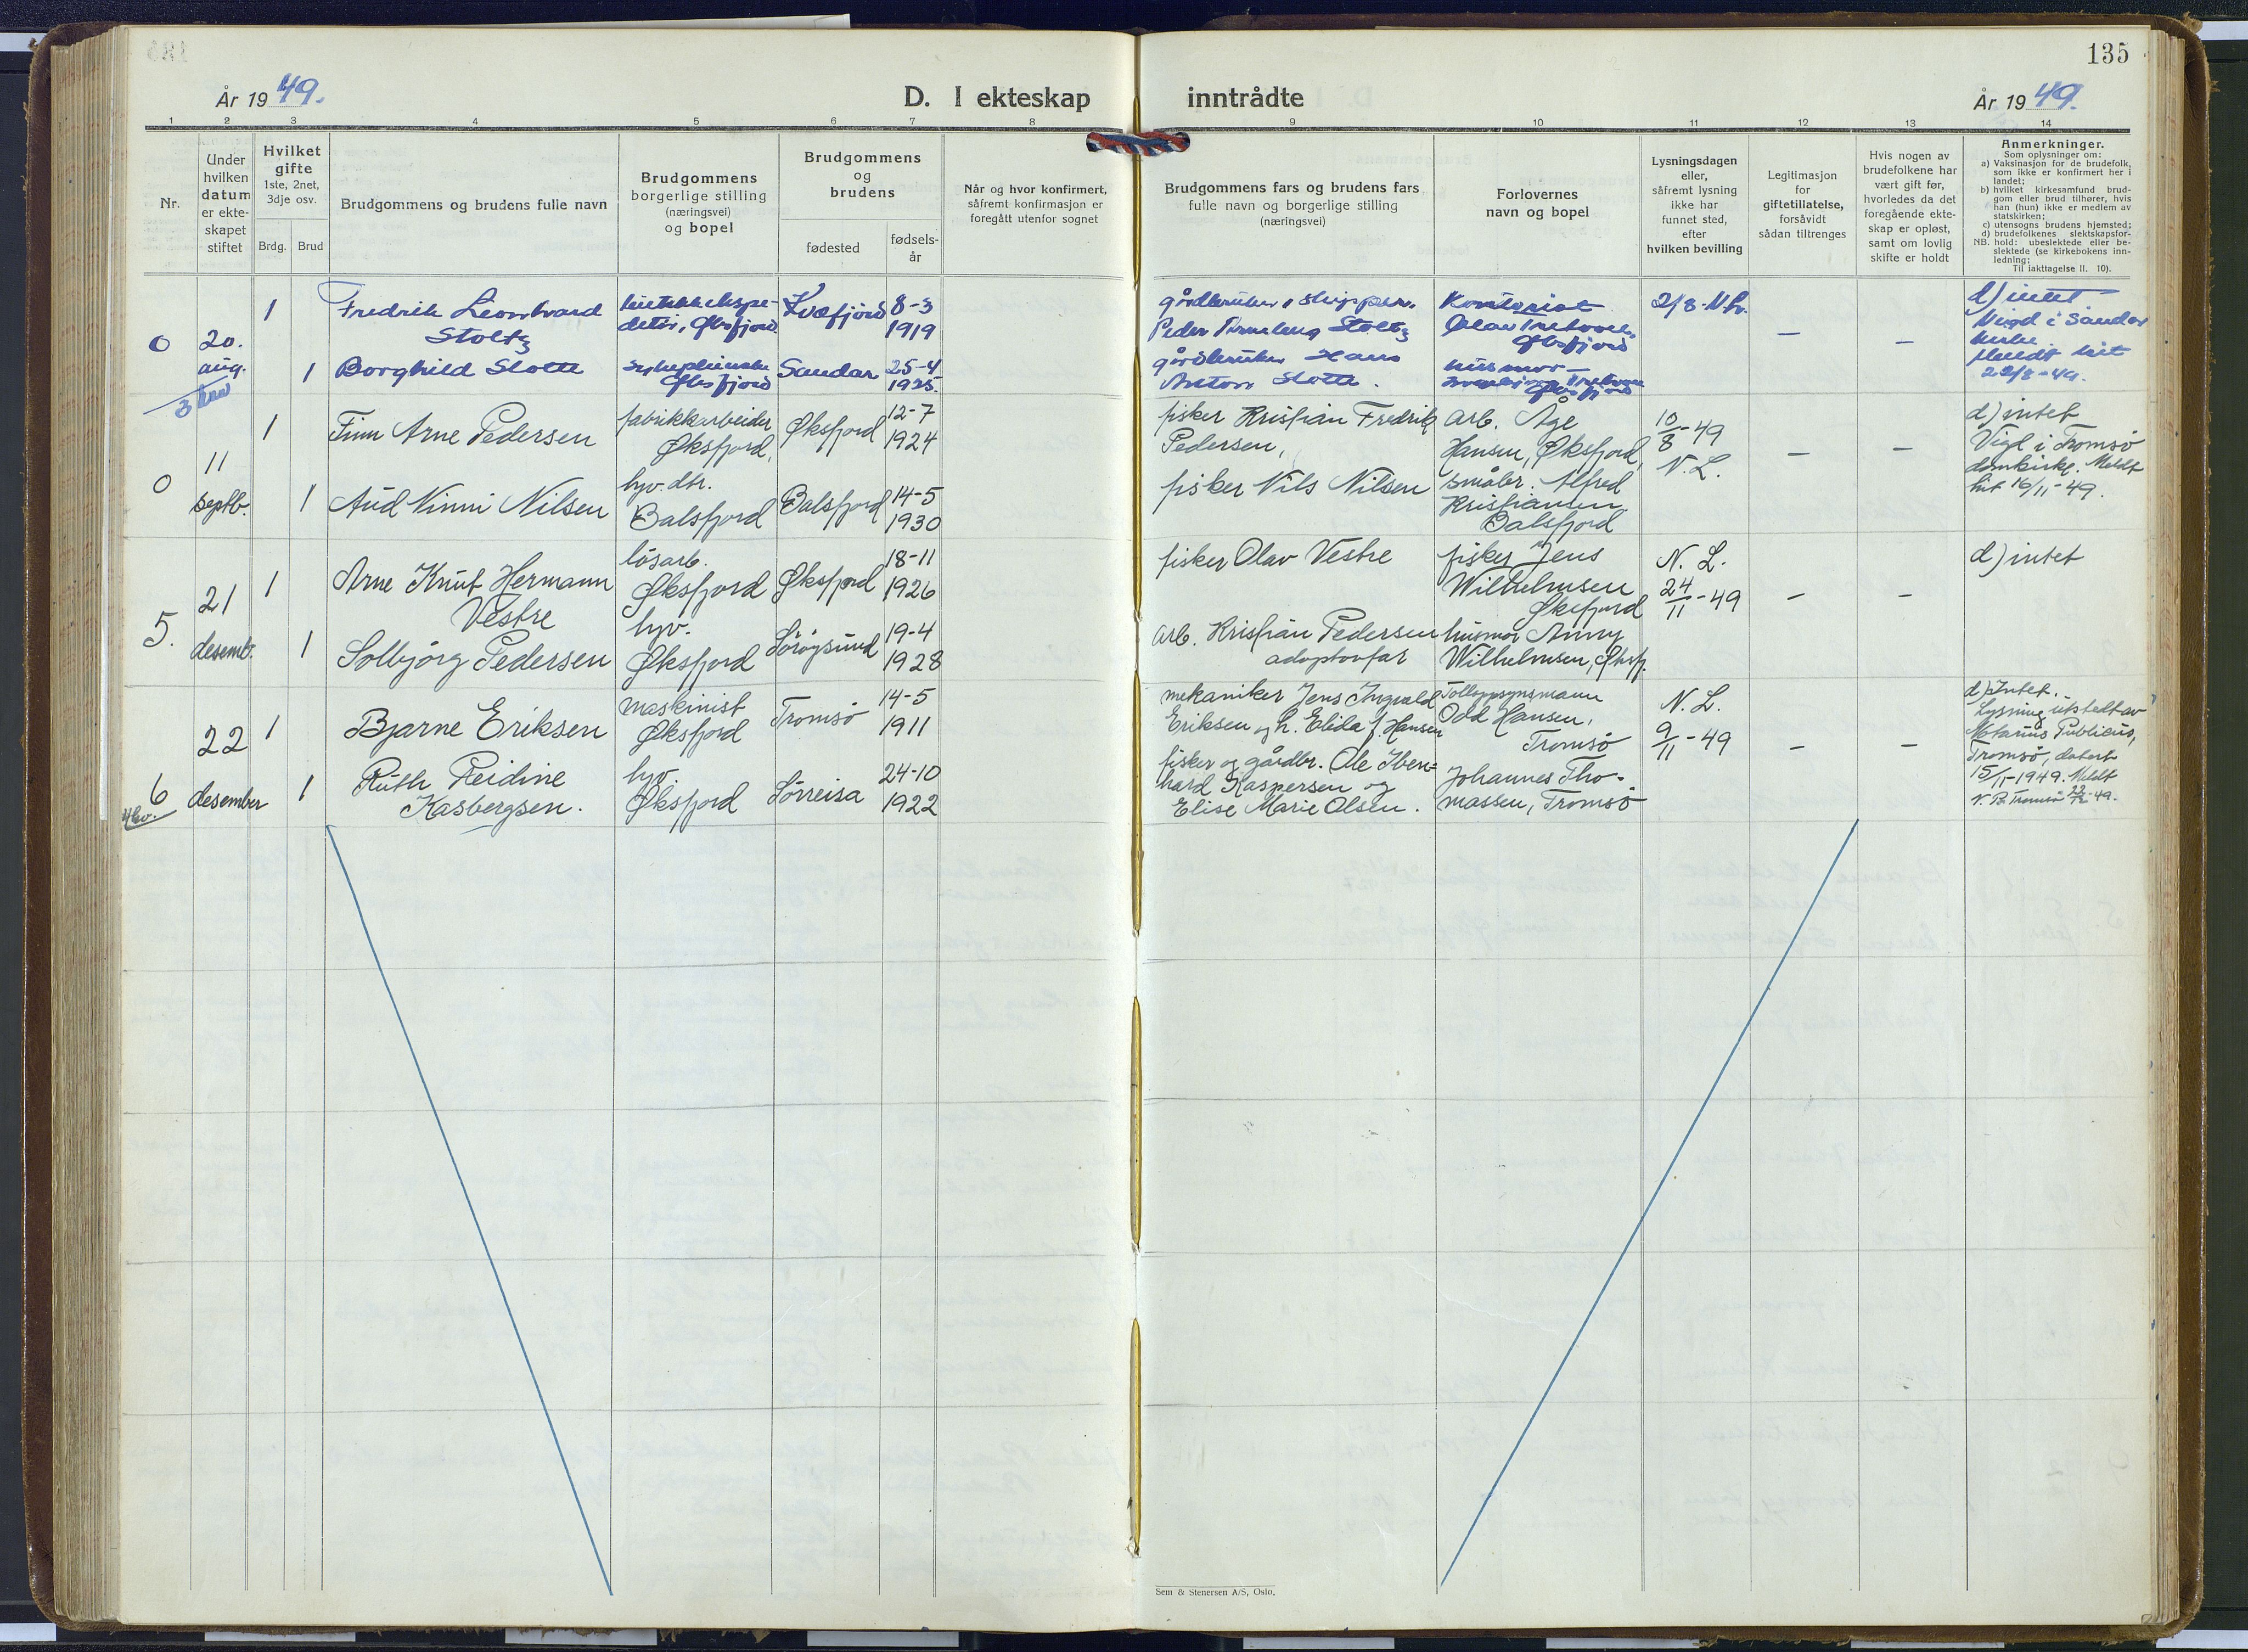 135
År 19 49.
D. I ekteskap inntrådte
År 19 49.
1 2 3 4 5 6 7 8 9 10 11 12 13 14
Nr.
Under
hvilken
datum
er ekte-
skapet
stiftet
Hvilket
gifte
1ste, 2net,
3dje osv.
Brdg. Brud
Brudgommens og brudens fulle navn
Brudgommens
borgerlige stilling
(næringsvei)
og bopel
Brudgommens
og
brudens
fødested
fødsels-
år
Når og hvor konfirmert,
såfremt konfirmasjon er
foregått utenfor sognet
Brudgommens fars og brudens fars
fulle navn og borgerlige stilling
(næringsvei)
Forlovernes
navn og bopel
Lysningsdagen
eller,
såfremt lysning
ikke har
funnet sted,
efter
hvilken bevilling
Legitimasjon
for
giftetillatelse,
forsåvidt
sådan tiltrenges
Hvis nogen av
brudefolkene har
vært gift før,
hvorledes da det
foregående ekte-
skap er opløst,
samt om lovlig
skifte er holdt
Anmerkninger.
Som oplysninger om:
a) Vaksinasjon for de brudefolk,
som ikke er konfirmert her i
landet;
b) hvilket kirkesamfund brud-
gom eller brud tilhører, hvis
han (hun) ikke er medlem av
statskirken;
c) utensogns brudens hjemsted;
d) brudefolkenes slektskapsfor-
NB. hold: ubeslektede eller be-
slektede (se kirkebokens inn-
ledning;
Til iakttagelse II. 10).
0
20.
aug.
1
Fredrik Leonhard
Stoltz
Øksfjord
Kvæfjord
8-3
1919
1
Borghild Slotte
Øksfjord
Sandar
25-4
1925
gårdbruker, skipper
Peder Stoltz
gårdbruker Hans
Anton Slotte.
Kontorist
Olav
Øksfjord
husmor
Øksfjord
2/8
-
-
d) intet
Vigd i Sandar
kirke.
Meldt hit
22/8-49.
0
11
septb.
1
Finn Arne Pedersen
fabrikkarbeider
Øksfjord,
Øksfjord
12-7
1924
1
Aud Ninni Nilsen
hjv. dtr.
Balsfjord
Balsfjord
14-5
1930
fisker Kristian Fredrik
Pedersen,
fisker Nils Nilsen
arb. Åge
Hansen, Øksfjord,
småbr. Alfred
Kristiansen
Balsfjord
10/8-49
N. L.
-
-
d) intet
Vigd i Tromsö
domkirke. Meldt
hit 16/11-49.
5.
21
desemb.
1
Arne Knut Hermann
Vestre
lösarb.
Øksfjord
Øksfjord
18-11
1926
1
Solbjörg Pedersen
hjv.
Øksfjord
Söröysund
19-4
1928
fisker Olav Vestre
arb. Kristian Pedersen
adoptovfar
fisker Jens
Wilhelmsen
Øksfjord
husmor Anny
Wilhelmsen, Øksfj.
N. L.
24/11-49
-
-
d) intet
6
22
desember
1
Bjarne Eriksen
maskinist
Øksfjord
Tromsö
14-5
1911
1
Ruth Reidine
Kasbergsen.
hjv.
Øksfjord
Sörreisa
24-10
1922
mekaniker Jens Ingvald
Eriksen og h. Elida f. Hansen
fisker og gårdbr. Ole Iben-
hard Kaspersen og
Elise Marie Olsen.
Tolloppsynsmann
Odd Hansen,
Tromsö
Johannes Tho-
massen, Tromsö
N. L.
9/11-49
-
-
d) Intet.
Lysning utstedt av
Notarius Publicus,
Tromsö, datert
15/11-1949. Meldt
N. P. Tromsö 22/12-49.
Sem & Stenersen A/S, Oslo.